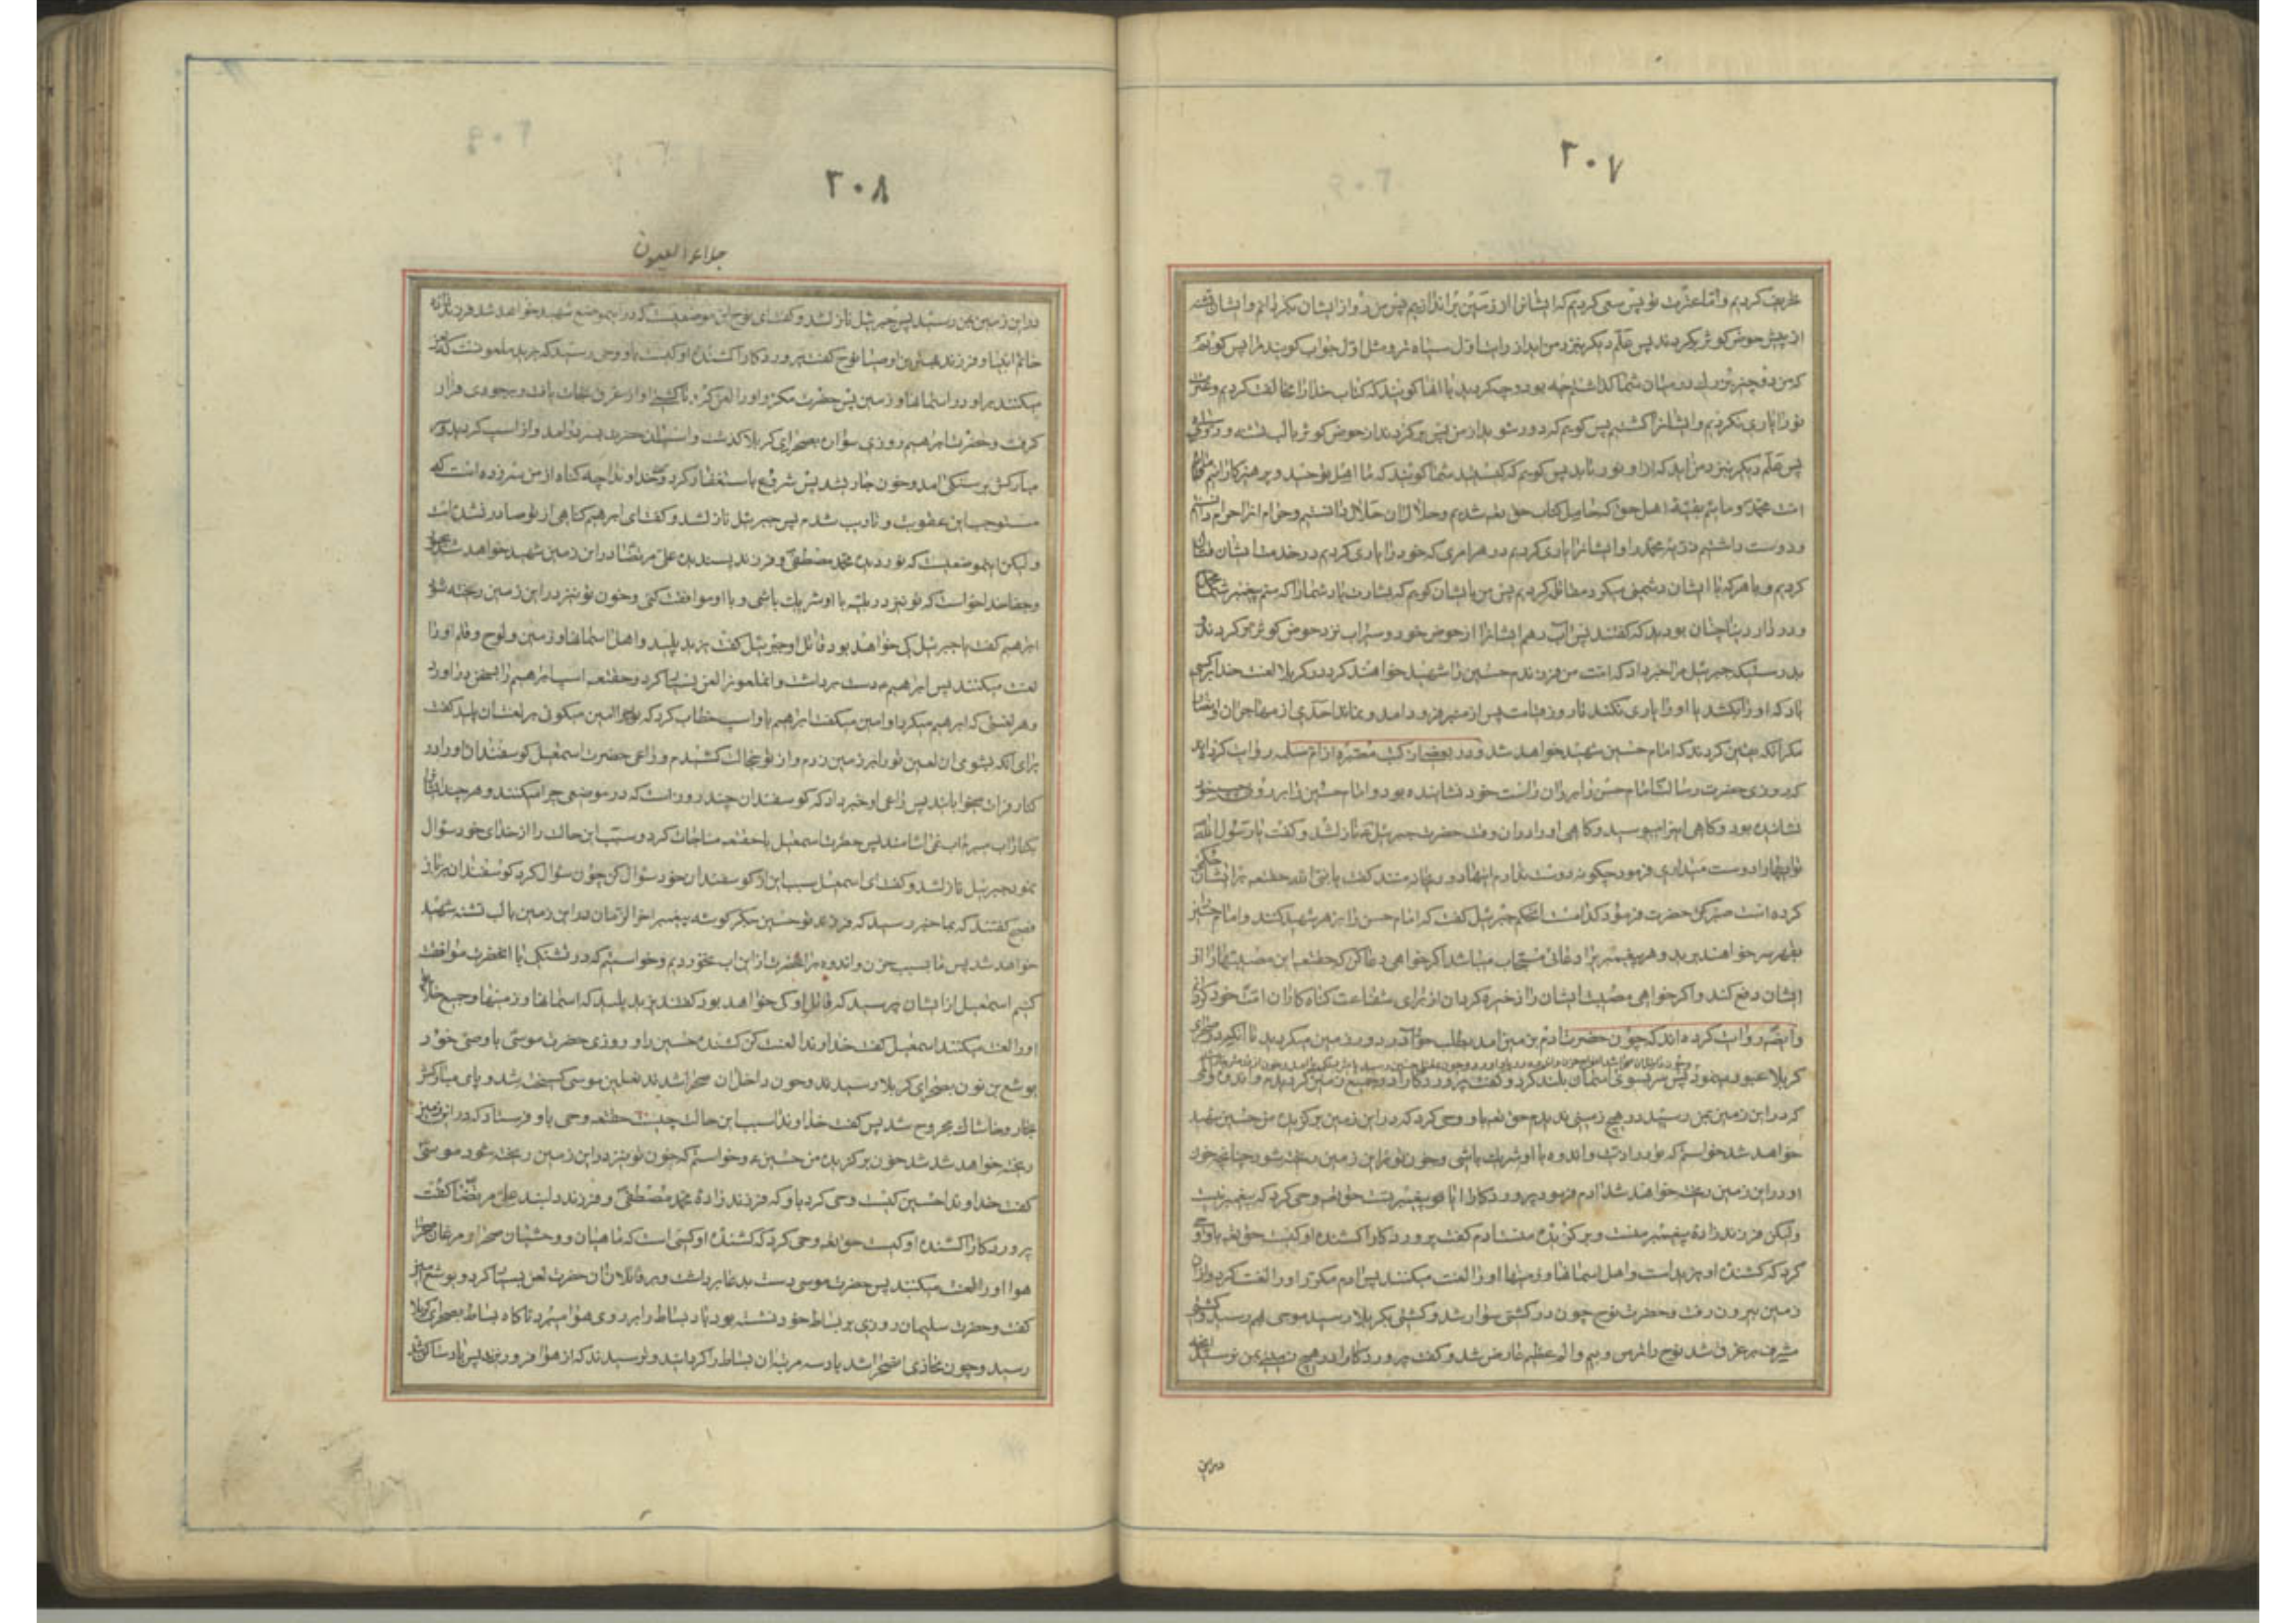 ۲۰۷
تحریف کردیم و اما عترت تو پس سعی کردیم که ایشانرا از زمین براندازیم پس من رو از ایشان بگردانم و ایشان تشنه
از پیش حوض کوثر برگردند پس علم دیگر بنزد من آید از رایت اول سیاه تر و مثل اول جواب گویند مرا پس گویم
که من دو چیز بزرك در میان شما گذاشتم چه بود و چه کردید با آنها گویند که کتاب خدا را مخالفت کردیم و عترت
تو را یاری نکردیم و ایشانرا کشتیم پس گویم که دور شوید از من پس برگردند از حوض کوثر با لب تشنه و
پس علم دیگر بنزد من آید که از او نور تابد پس گویم که کیستید شما گویند که ما اهل توحید و پرهیزکارانیم مائیم
امت محمد و مائیم بقیهٔ اهل حق که حامل کتاب حق تعه شدیم و حلال آن حلال دانستیم و حرام آنرا حرام دانستیم
و دوست داشتیم ذریهٔ محمد را و ایشانرا یاری کردیم در هر امری که خود را یاری کردیم در خدمت ایشان قتال
کردیم و با هر که با ایشان دشمنی میکرد مقاتله کردیم پس من بایشان گویم که بشارت باد شما را که منم پیغمبر شما محمد
و در دار دنیا چنان بودید که گفتند پس آب دهم ایشانرا از حوض خود و سیراب نزد حوض کوثر برگردند
بدرستیکه جبرئیل مرا خبر داد که امت من فرزندم حسین را شهید خواهند کرد در کربلا لعنت خدا بر کسی
باد که او را بکشد یا او را یاری نکند تا روز قیامت پس از منبر فرود آمد و نماند احدی از مهاجران و انصار
مگر آنکه یقین کردند که امام حسین شهید خواهد شد و در بعضی از کتب معتبره از ام سلمه روایت کرده اند
که روزی حضرت رسالت امام حسن را بر ران راست خود نشانده بود و امام حسین را بر روی ران چپ خود
نشانیده بود و گاهی اینرا میبوسید و گاهی او را در آن وقت حضرت جبرئیل نازل شد و گفت یا رسول الله
تو اینها را دوست میداری فرمود چگونه دوست ندارم اینها دو ریحانه منند گفت یا نبی الله حقتعه بر ایشان حکمی
کرده است صبر کن حضرت فرمود کدامست آنحکم جبرئیل گفت که امام حسن را بزهر شهید کنند و امام حسین را
بقهر سر خواهند برید و هر پیغمبر را دعائی مستجاب میباشد اگر خواهی دعا کن که حقتعه این مصیبتها را از
ایشان دفع کند و اگر خواهی مصیبت ایشان را ذخیره گردان از برای شفاعت گناه کاران امت خود
و ایضاً روایت کرده اند که چون حضرت آدم بزمین آمد بطلب حوا آمد در دور زمین میگردید تا آنکه در صحرای
کربلا عبور نمود پس سر بسوی آسمان بلند کرد و گفت پروردگارا در جمیع زمین گردیدم و اندوهی
که در این زمین بمن رسید در هیچ زمینی ندیدم حق تعه باو وحی کرد که در این زمین برگزیدهٔ من حسین شهید
خواهد شد خواستم که تو در اذیت و اندوه با او شریك باشی و خون تو در این زمین ریخته شود چنانچه خون
او در این زمین ریخته خواهد شد آدم فرمود پروردگارا آیا او پیغمبر تست حق تعه وحی کرد که پیغمبر نیست
ولیکن فرزند زادهٔ پیغمبر منست و برگزیدهٔ منست آدم گفت پروردگارا کشندهٔ او کیست حق تعه باو وحی
کرد که کشندهٔ او یزید است و اهل آسمانها و زمینها او را لعنت میکنند پس آدم مکرر او را لعنت کرد و از آن
زمین بیرون رفت و حضرت نوح چون در کشتی سوار شد و کشتی بکربلا رسید موجی بهم رسید و کشتی
مشرف بر غرق شد نوح را ترس و بیم و الم عظیم عارض شد و گفت پروردگارا در هیچ زمینی بمن نرسید آنچه
در این
۲۰۸
جلاء العیون
در این زمین بمن رسید پس جبرئیل نازل شد و گفت ای نوح این موضعیست که در این موضع شهید خواهد شد فرزند زاده
خاتم انبیا و فرزند بهترین اوصیا نوح گفت پروردگارا کشندهٔ او کیست باو وحی رسید که یزید ملعونست که لعن
میکنند بر او در آسمانها و زمین پس حضرت مکرر او را لعن کرد تا کشتی او از غرق نجات یافت و بر جودی قرار
گرفت و حضرت ابرهیم روزی سواره بصحرای کربلا گذشت و اسب آن حضرت بسر در آمد و از اسب گردید و سر
مبارکش بر سنگی آمد و خون جاری شد پس شروع باستغفار کرد و گفت خداوندا چه گناه از من سر زده است که
مستوجب این عقوبت و تادیب شدم پس جبرئیل نازل شد و گفت ای ابرهیم گناهی از تو صادر نشده است
ولیکن این موضعیست که نور دیدهٔ محمد مصطفی و فرزند پسندیدهٔ علی مرتضا در این زمین شهید خواهد شد بجور
و جفا خدا خواست که تو نیز در بلیه با او شریك باشی و با او موافقت کنی و خون تو نیز در این زمین ریخته شود
ابرهیم گفت یا جبرئیل کی خواهد بود قاتل او جبرئیل گفت یزید پلید و اهل آسمانها و زمین و لوح و قلم او را
لعنت میکنند پس ابرهیم دست برداشت و آنملعونرا لعن بسیار کرد و حقتعه اسب ابرهیم را بسخن در آورد
و هر لعنتی که ابرهیم میکرد او آمین میگفت ابرهیم با اسب خطاب کرد که چرا آمین میگوئی بر لعنت آن پلید گفت
برای آنکه بشومی آن لعین تو را بر زمین زدم و از تو خجالت کشیدم و راعی حضرت اسمعیل گوسفندان او را در
کنار فرات میخوابانید پس راعی او خبر داد که گوسفندان چند روز است که در موضعی چرا میکنند و هر چند ایشانرا
بکنار آب میبرم آب نمی آشامند پس حضرت اسمعیل با حقتعه مناجات کرد و سبب این حالت را از خدای خود سؤال
نمود جبرئیل نازل شد و گفت ای اسمعیل سبب این از گوسفندان خود سؤال کن چون سؤال کرد گوسفندان بزبان
فصیح گفتند که بما خبر رسید که فرزند تو حسین جگر گوشه پیغمبر آخر الزمان در این زمین با لب تشنه شهید
خواهد شد پس ما بسبب حزن و اندوه بر آنحضرت از این آب نخوردیم و خواستیم که در تشنگی با آنحضرت موافقت
کنیم اسمعیل از ایشان پرسید که قاتل او کی خواهد بود گفتند یزید پلید که آسمانها و زمینها و جمیع خلایق
او را لعنت میکنند اسمعیل گفت خداوندا لعنت کن کشندهٔ حسین را و روزی حضرت موسی با وصی خود
یوشع بن نون بصحرای کربلا رسیدند و چون داخل آن صحرا شدند نعلین موسی گسیخته شد و پای مبارکش
بخار و خاشاك مجروح شد پس گفت خداوندا سبب این حالت چیست حقتعه وحی باو فرستاد که در این زمین
ریخته خواهد شد خون برگزیدهٔ من حسین و خواستم که خون تو نیز در این زمین ریخته شود موسی
گفت خداوندا حسین کیست وحی کرد باو که فرزند زادهٔ محمد مصطفی و فرزند دلبند علی مرتضا گفت
پروردگارا کشندهٔ او کیست حق تعه وحی کرد که کشندهٔ او کسی است که ماهیان و وحشیان صحرا و مرغان
هوا او را لعنت میکنند پس حضرت موسی دست بدعا برداشت و بر قاتلان آن حضرت لعن بسیار کرد و یوشع آمین
گفت و حضرت سلیمان روزی بر بساط خود نشسته بود و باد بساط را بر روی هوا میبرد ناگاه بساط بصحرای کربلا
رسید و چون محاذی آن صحرا شد باد سه مرتبه آن بساط را گردانید و ترسیدند که از هوا فرو ریزند پس باد ساکن شد